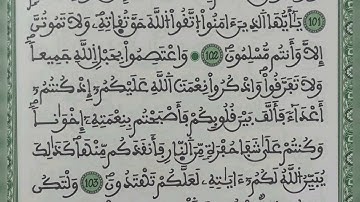 101 يَٰٓأَيُّهَا اَ۬لذِينَ ءَامَنُواْ اُ۪تَّقُواْ اُ۬للَّهَ حَقَّ تُقَاتِهِۦ وَلَا تَمُوتُنَّ
إِلَّا وَأَنتُم مُّسْلِمُونَ 102 وَاعْتَصِمُواْ بِحَبْلِ اِ۬للَّهِ جَمِيعاٗ
وَلَا تَفَرَّقُواْ وَاذْكُرُواْ نِعْمَتَ اَ۬للَّهِ عَلَيْكُمُۥٓ إِذْ كُنتُمُۥٓ
أَعْدَآءٗ فَأَلَّفَ بَيْنَ قُلُوبِكُمْ فَأَصْبَحْتُم بِنِعْمَتِهِۦٓ إِخْوَٰناٗ
وَكُنتُمْ عَلَىٰ شَفَا حُفْرَةٖ مِّنَ اَ۬لنّ۪ارِ فَأَنقَذَكُم مِّنْهَا كَذَٰلِكَ
يُبَيِّنُ اُ۬للَّهُ لَكُمُۥٓ ءَايَٰتِهِۦ لَعَلَّكُمْ تَهْتَدُونَ 103 وَلْتَكُن